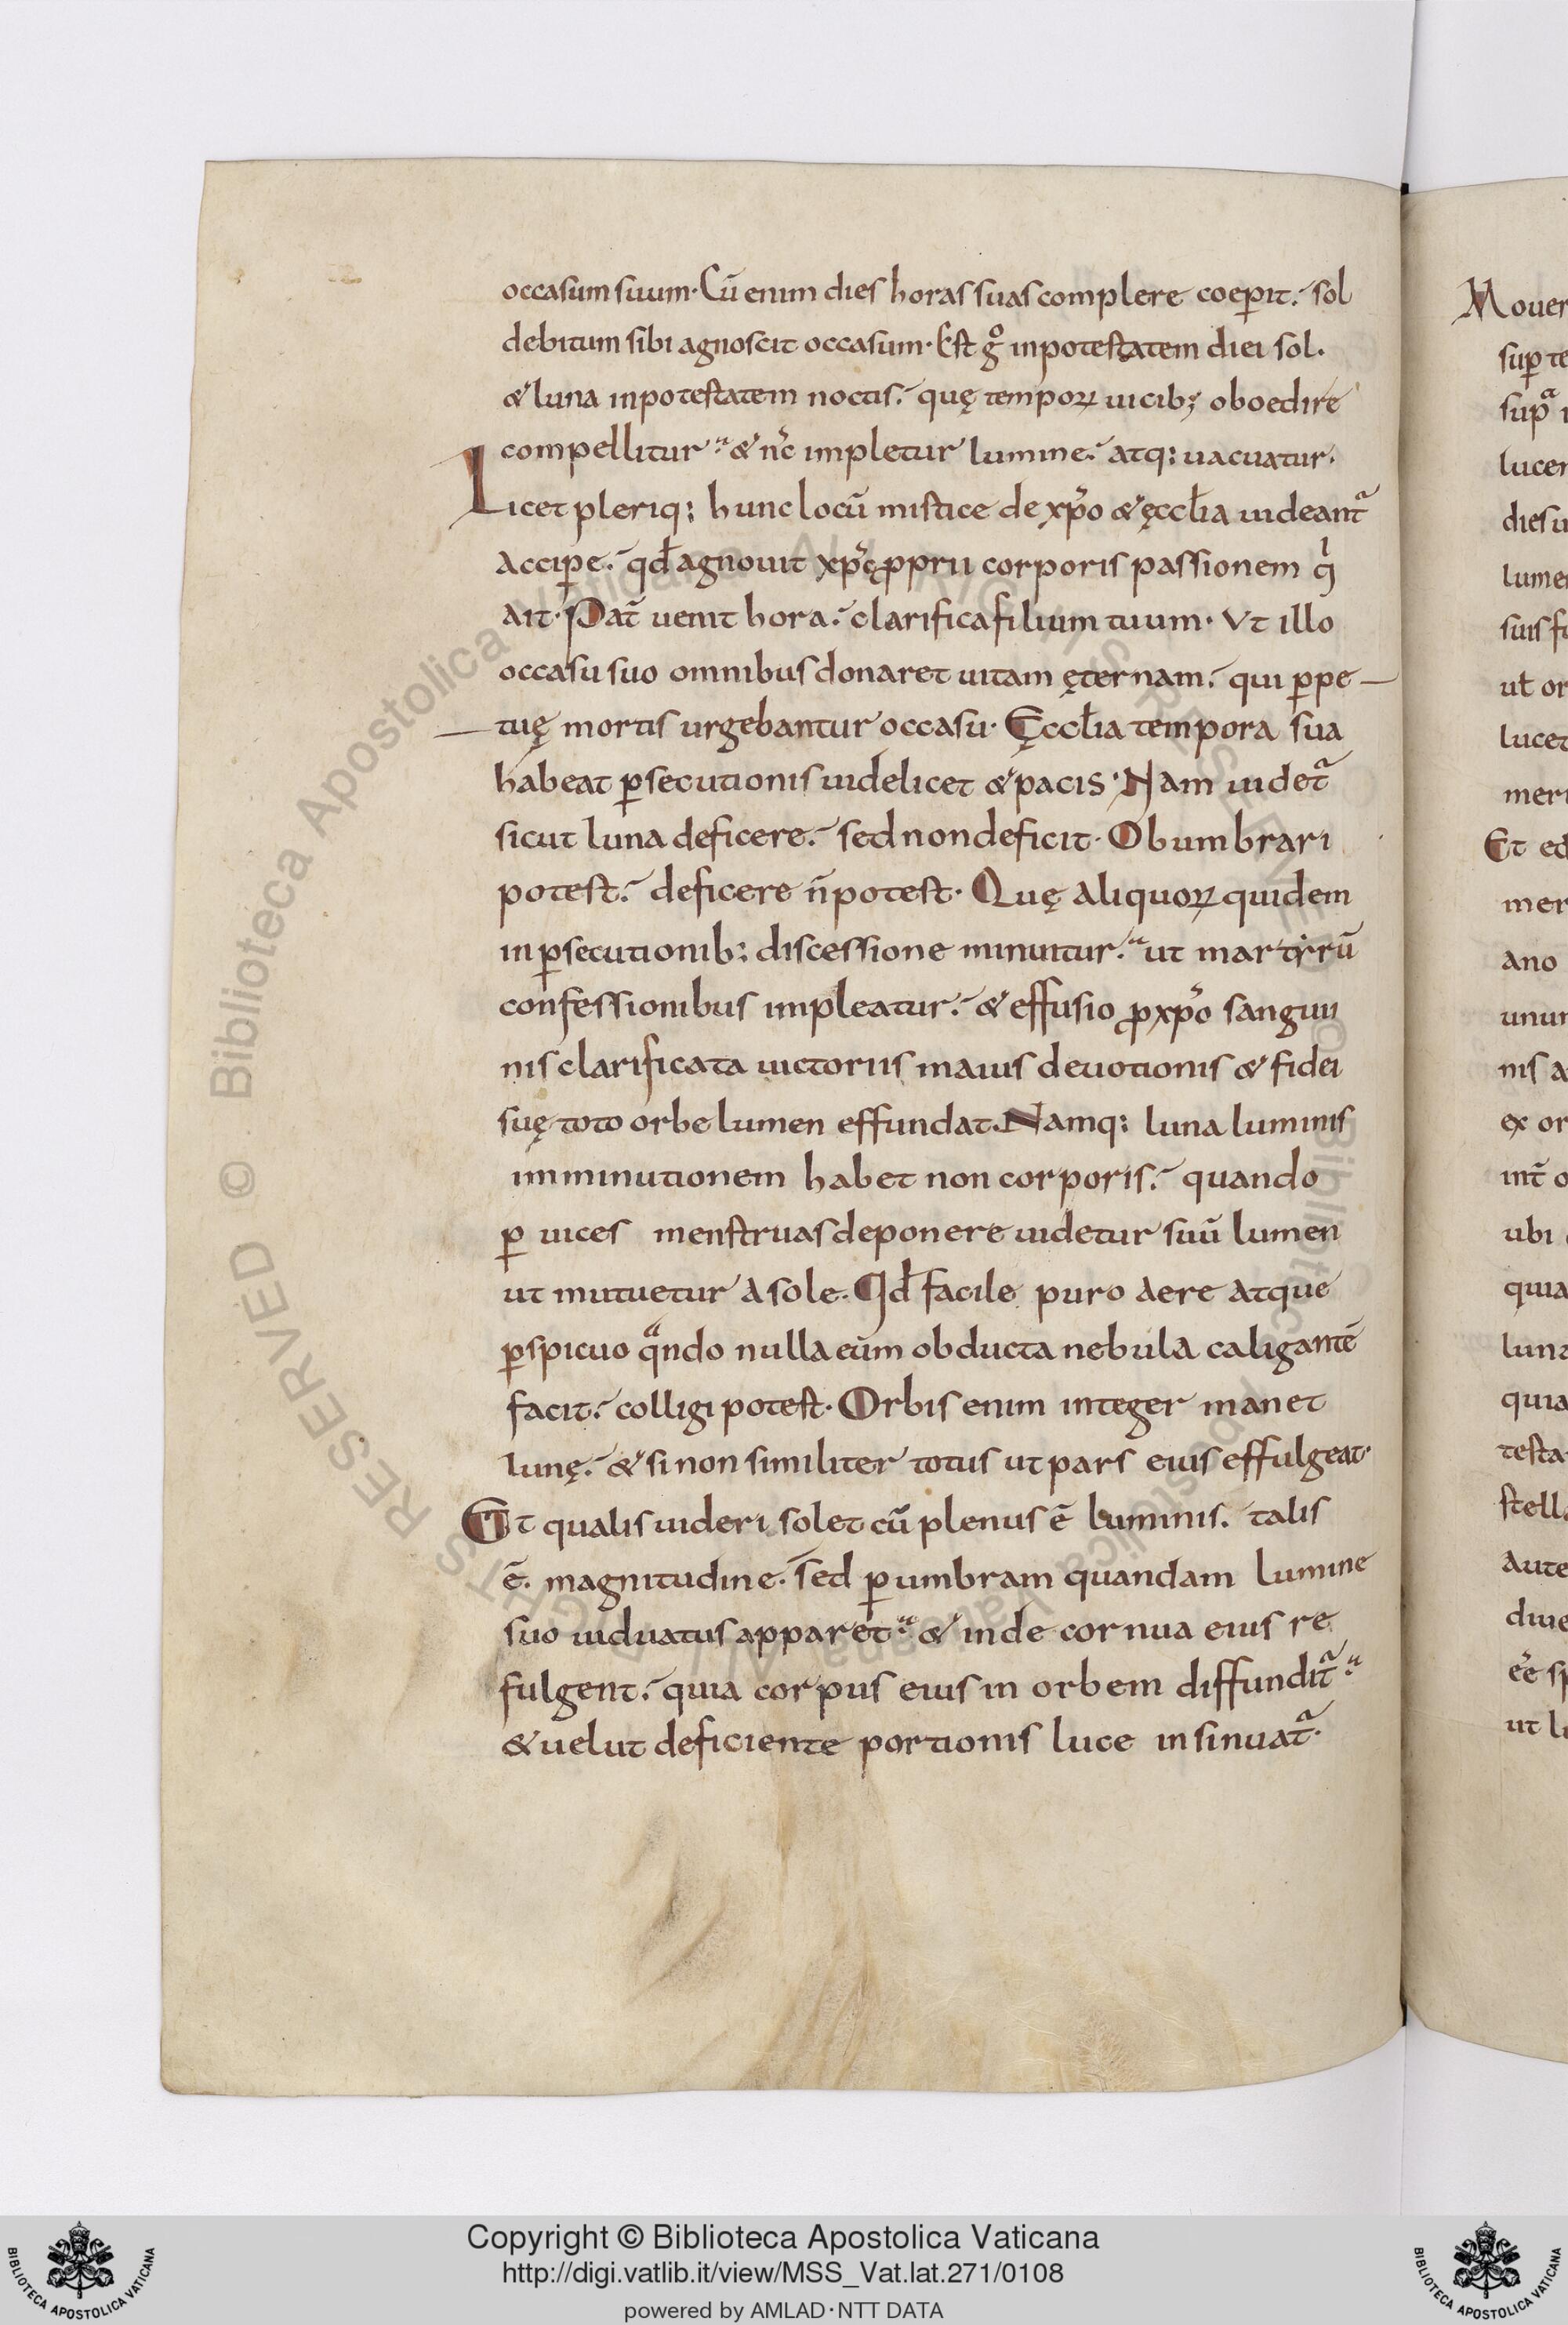 occasum suum. Cū enim dies horas suas complere coeꝑit. sol
debitum sibi agnoscit occasum. Est gͦ inpotestatem diei sol.
& luna inpotestatem noctis. quę temporꝝ uicib; oboedire
compellitur & nc̄ impletur lumine. atq: uacuatur.
Licet pleriq: hunc locū mistice de xp̄o & ęccłia uideant̄
accipe. qđ agnouit xp̄c ꝓprii corporis passionem qͥ
ait. Pat̄ uenit hora. clarifica filium tuum. Ut illo
occasu suo omnibus donaret uitam ęternam. qui ꝑpe
tuę mortis urgebantur occasu. Ęccłia tempora sua
habeat ꝑsecutionis uidelicet & pacis. Nam uidet̄
sicut luna deficere. sed non deficit. Obumbrari
potest. deficere n̄ potest. Quę aliquoꝝ quidem
in ꝑsecutionib: discessione minuitur. ut martyrū
confessionibus impleatur. & effusio ꝓ xp̄o sangui
nis clarificata uictoriis maius deuotionis & fidei
suę toto orbe lumen effundat. Namq: luna luminis
imminutionem habet non corporis. quando
ꝑ uices menstruas deponere uidetur suū lumen
ut mutuetur a sole. Qđ facile puro aere atque
ꝑspicuo qͣndo nulla eūm obducta nebula caligantē
facit. colligi potest. Orbis enim integer manet
lunę. & si non similiter totus ut pars eius effulgeat.
Et qualis uideri solet cū plenus ē luminis. talis
ē. magnitudine. sed ꝑ umbram quandam lumine
suo uiduatus apparet & inde cornua eius re
fulgent. quia corpus eius in orbem diffundit̄
& uelut deficiente portionis luce insinuat̄.
Mouer
suꝑ te
supͣ
lucer
dies u
lume
suis fu
ut or
lucet
meri
Et ed
mer
ano
unur
nis a
ex or
int̄ o
ubi
quia
luna
quia
testa
stell
aute
diue
ēe sp
ut lu
Biblioteca Apostolica Vaticana
ALL RIGHTS RESERVED ©
Copyright © Biblioteca Apostolica Vaticana
http://digi.vatlib.it/view/MSS_Vat.lat.271/0108
powered by AMLAD·NTT DATA
BIBLIOTECA APOSTOLICA VATICANA
BIBLIOTECA APOSTOLICA VATICANA